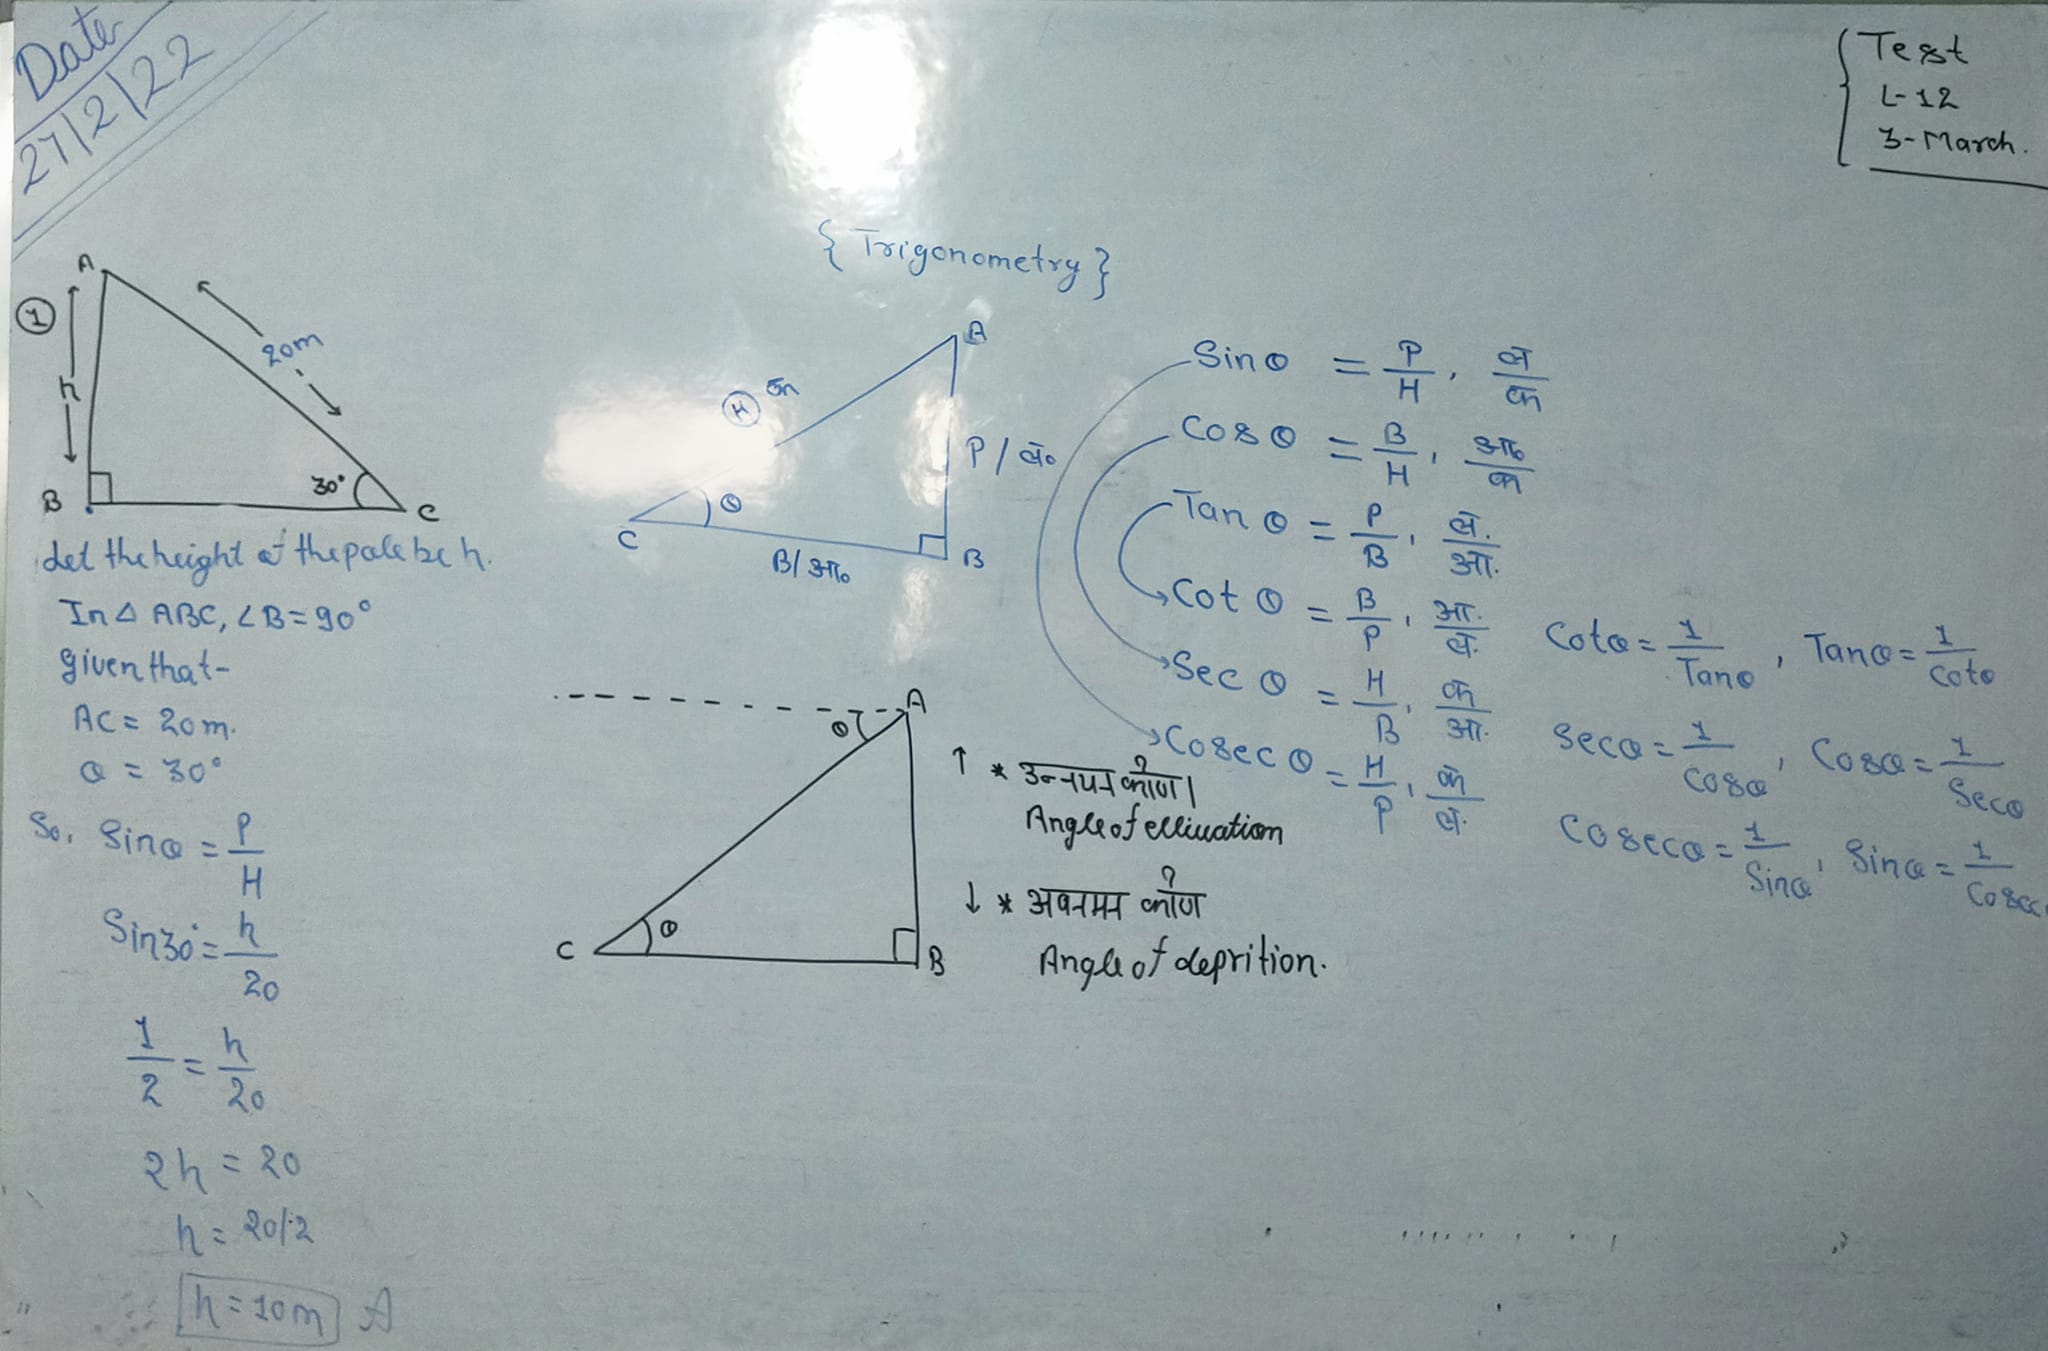 Date
27/2/22
Test
L-12
3-March.
{ Trigonometry }
1
A
20m
h
B
30°
C
Let the height of the pole be h.
In △ ABC, ∠B=90°
given that-
AC = 20m.
θ = 30°
So, Sinθ = P/H
Sin30° = h/20
1/2 = h/20
2h = 20
h = 20/2
h = 10m A
A
H क
P / लं०
θ
C
B/ आ०
B
Sin θ = P/H, लं/क
Cos θ = B/H, आ०/क
Tan θ = P/B, लं./आ.
Cot θ = B/P, आ./लं.
Sec θ = H/B, क/आ.
Cosec θ = H/P, क/लं.
Cotθ = 1/Tanθ, Tanθ = 1/Cotθ
Secθ = 1/Cosθ, Cosθ = 1/Secθ
Cosecθ = 1/Sinθ, Sinθ = 1/Cosec
A
θ
θ
C
B
↑ * उन्नयन कोण ।
Angle of ellivation
↓ * अवनमन कोण
Angle of deprition.